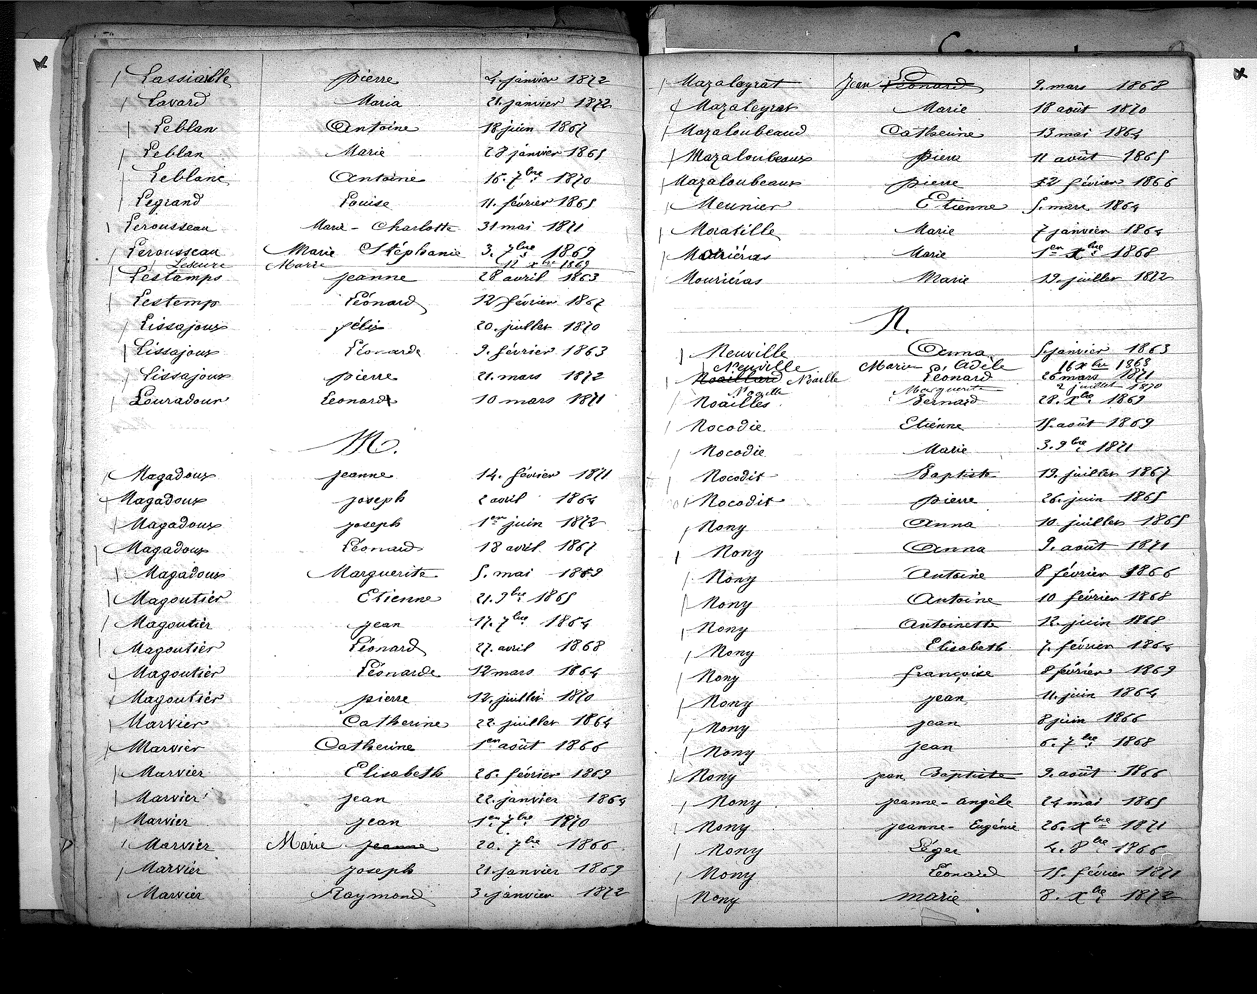 Lassiaille pierre 4. janvier 1872
Lavard Maria 21. janvier 1872
Leblan Antoine 18 juin 1867
Leblan Marie 28 janvier 1865
Leblanc Antoine 16. 7bre 1870
Legrand Louise 11. février 1865
Lerousseau Marie - Charlotte 31 mai 1871
Lerousseau Marie Stéphanie 3. 7bre 1869
Leseure Marie 12 xbre 1869
Lestamps jeanne 28 avril 1863
Lestemp Léonard 12 février 1867
Lissajoux félix 20. juillet 1870
Lissajoux Léonarde 9. février 1863
Lissajoux pierre 21. mars 1872
Louradour Léonard 10 mars 1871
M.
Magadoux jeanne 14. février 1871
Magadoux joseph 2 avril 1864
Magadoux joseph 1er juin 1872
Magadoux Léonard 18 avril 1867
Magadoux Marguerite 5. mai 1869
Magoutier Etienne 21. 9bre 1865
Magoutier jean 17. 7bre 1864
Magoutier Léonard 27. avril 1868
Magoutier Léonarde 12 mars 1864
Magoutier pierre 12. juillet 1870
Marvier Catherine 22. juillet 1864
Marvier Catherine 1er août 1866
Marvier Elisabeth 26. février 1869
Marvier jean 22. janvier 1864
Marvier jean 1er 7bre 1870
Marvier Marie jeanne 20. 7bre 1866
Marvier joseph 21. janvier 1869
Marvier Raymond 3. janvier 1872
Mazaleyrat Jean Léonard 9. mars 1868
Mazaleyrat Marie 18 août 1870
Mazaloubeaud Catherine 13 mai 1864
Mazaloubeaux pierre 11 août 1865
Mazaloubeaux pierre 22 février 1866
Meunier Etienne 5. mars 1864
Moratille Marie 7 janvier 1864
Mouriéras Marie 1er xbre 1868
Mouriéras Marie 19. juillet 1872
N.
Neuville Anna 5 janvier 1863
Neuville Marie Adèle 16 xbre 1868
Noaillard Noaille Léonard 26 mars 1871
Noaille Marguerite 2 juillet 1870
Noailles Bernard 28. xbre 1869
Nocodie Etienne 15. août 1869
Nocodie Marie 3. 9bre 1871
Nocodie Baptiste 19. juillet 1867
Nocodie pierre 26. juin 1865
Nony Anna 10 juillet 1865
Nony Anna 9. août 1871
Nony Antoine 8 février 1866
Nony Antoine 10 février 1868
Nony Antoinette 12. juin 1868
Nony Elisabeth 7. février 1864
Nony françoise 8 février 1869
Nony jean 11. juin 1864
Nony jean 8 juin 1866
Nony jean 6. 7bre 1868
Nony jean Baptiste 9. août 1866
Nony jeanne - Angèle 24 mai 1865
Nony jeanne - Eugénie 26. xbre 1871
Nony Léger 4. 8bre 1866
Nony Léonard 15. février 1871
Nony marie 8. xbre 1872